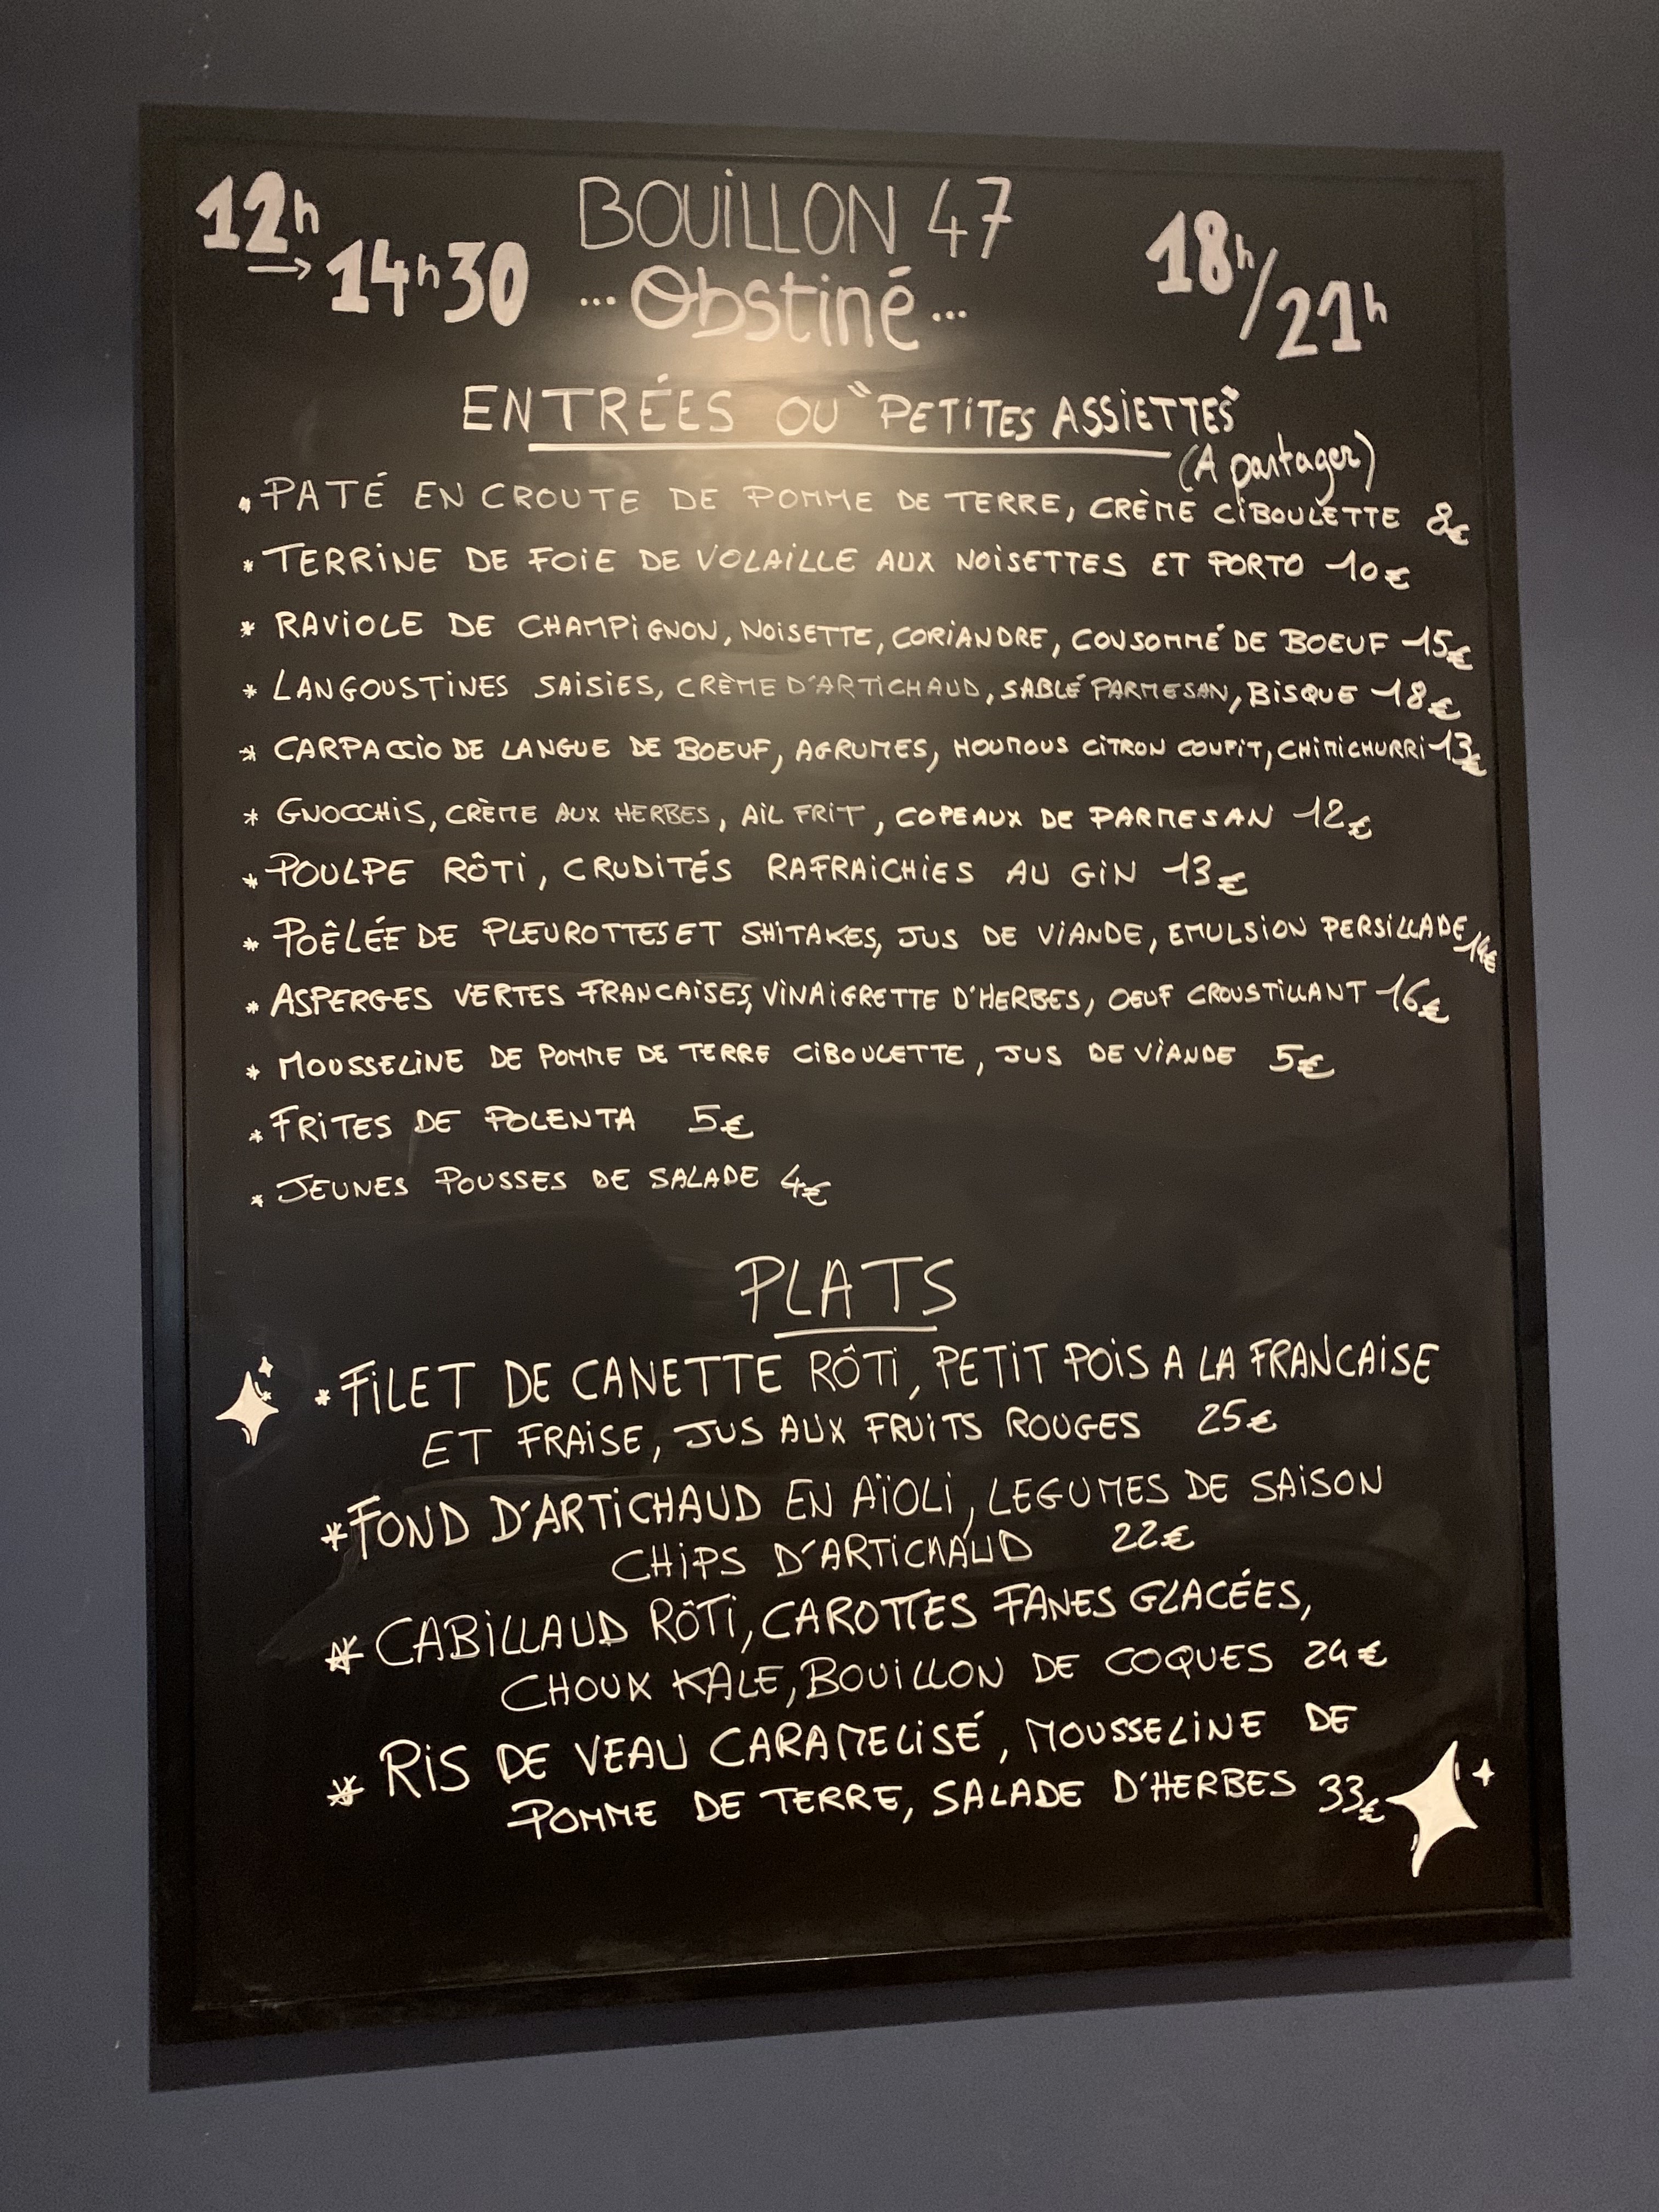 12h → 14h30
BOUiLLON 47
... Obstiné ...
18h/21h
ENTRÉES OU "PETITES ASSIETTES"
(A partager)
• PATÉ EN CROUTE DE POMME DE TERRE, CRÈME CIBOULETTE 8€
* TERRINE DE FOIE DE VOLAILLE AUX NOISETTES ET PORTO 10€
* RAVIOLE DE CHAMPIGNON, NOISETTE, CORIANDRE, CONSOMMÉ DE BOEUF 15€
* LANGOUSTINES SAISIES, CRÈME D'ARTICHAUD, SABLÉ PARMESAN, BISQUE 18€
* CARPACCIO DE LANGUE DE BOEUF, AGRUMES, HOUMOUS CITRON CONFIT, CHIMICHURRI 13€
* GNOCCHIS, CRÈME AUX HERBES, AIL FRIT, COPEAUX DE PARMESAN 12€
* POULPE RÔTI, CRUDITÉS RAFRAICHIES AU GIN 13€
* POÊLÉE DE PLEUROTTES ET SHITAKES, JUS DE VIANDE, EMULSION PERSILLADE 14€
* ASPERGES VERTES FRANCAISES, VINAIGRETTE D'HERBES, OEUF CROUSTILLANT 16€
* MOUSSELINE DE POMME DE TERRE CIBOULETTE, JUS DE VIANDE 5€
* FRITES DE POLENTA 5€
* JEUNES POUSSES DE SALADE 4€
PLATS
* FILET DE CANETTE RÔTI, PETIT POIS A LA FRANCAISE
ET FRAISE, JUS AUX FRUITS ROUGES 25€
* FOND D'ARTICHAUD EN AÏOLI, LEGUMES DE SAISON
CHIPS D'ARTICHAUD 22€
* CABILLAUD RÔTI, CAROTTES FANES GLACÉES,
CHOUX KALE, BOUILLON DE COQUES 24€
* RIS DE VEAU CARAMELISÉ, MOUSSELINE DE
POMME DE TERRE, SALADE D'HERBES 33€